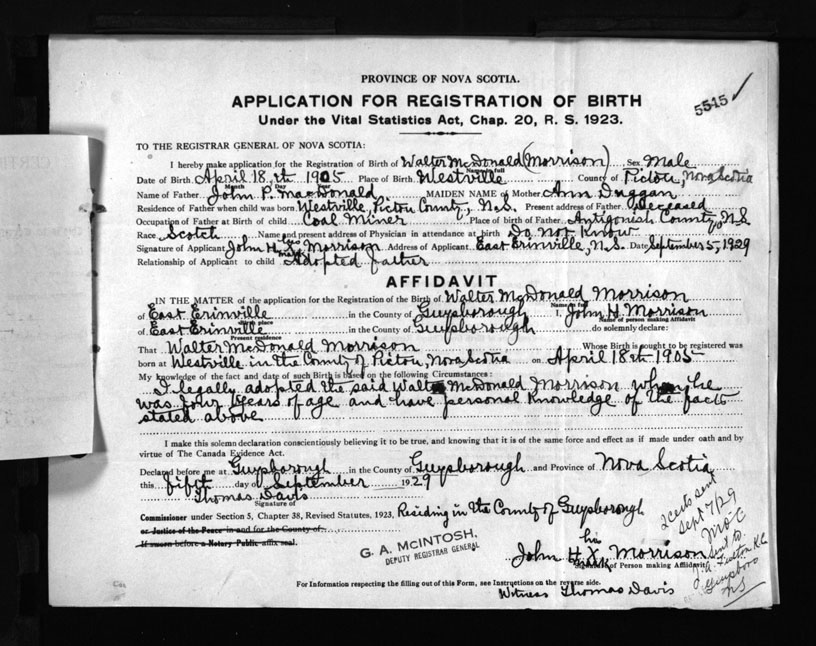 PROVINCE OF NOVA SCOTIA.
APPLICATION FOR REGISTRATION OF BIRTH
5515 ✓
Under the Vital Statistics Act, Chap. 20, R. S. 1923.
TO THE REGISTRAR GENERAL OF NOVA SCOTIA:
I hereby make application for the Registration of Birth of Walter McDonald (Morrison) Sex Male
Name in full
Date of Birth April 18th 1905 Place of Birth Westville County of Pictou, Nova Scotia
Month Day Year
Name of Father John P. MacDonald MAIDEN NAME of Mother Ann Duggan
Residence of Father when child was born Westville, Pictou County, N.S. Present address of Father Deceased
Occupation of Father at Birth of child Coal Miner Place of birth of Father Antigonish County, N.S.
Race Scotch Name and present address of Physician in attendance at birth Do not Know
Signature of Applicant John H. his X mark Morrison Address of Applicant East Erinville, N.S. Date September 5, 1929
Relationship of Applicant to child Adopted father
AFFIDAVIT
IN THE MATTER of the application for the Registration of the Birth of Walter McDonald Morrison
Name in full
of East Erinville in the County of Guysborough I, John H. Morrison
Birth place Name of person making Affidavit
of East Erinville in the County of Guysborough do solemnly declare:
Present residence
That Walter McDonald Morrison Whose Birth is sought to be registered was
born at Westville in the County of Pictou, Nova Scotia on April 18th 1905
My knowledge of the fact and date of such Birth is based on the following Circumstances:
I legally adopted the said Walter McDonald Morrison when he
was four years of age and have personal knowledge of the facts
stated above
I make this solemn declaration conscientiously believing it to be true, and knowing that it is of the same force and effect as if made under oath and by
virtue of The Canada Evidence Act.
Declared before me at Guysborough in the County of Guysborough and Province of Nova Scotia
this fifth day of September 1929
Thomas Davis
Signature of
Commissioner under Section 5, Chapter 38, Revised Statutes, 1923, Residing in the County of Guysborough
or Justice of the Peace in and for the County of
If sworn before a Notary Public affix seal.
G. A. McINTOSH,
DEPUTY REGISTRAR GENERAL
John H. his X mark Morrison
Signature of Person making Affidavit
2 certs sent
Sept 7/29
sent to
Guysboro
N.S.
For Information respecting the filling out of this Form, see Instructions on the reverse side.
Witness Thomas Davis